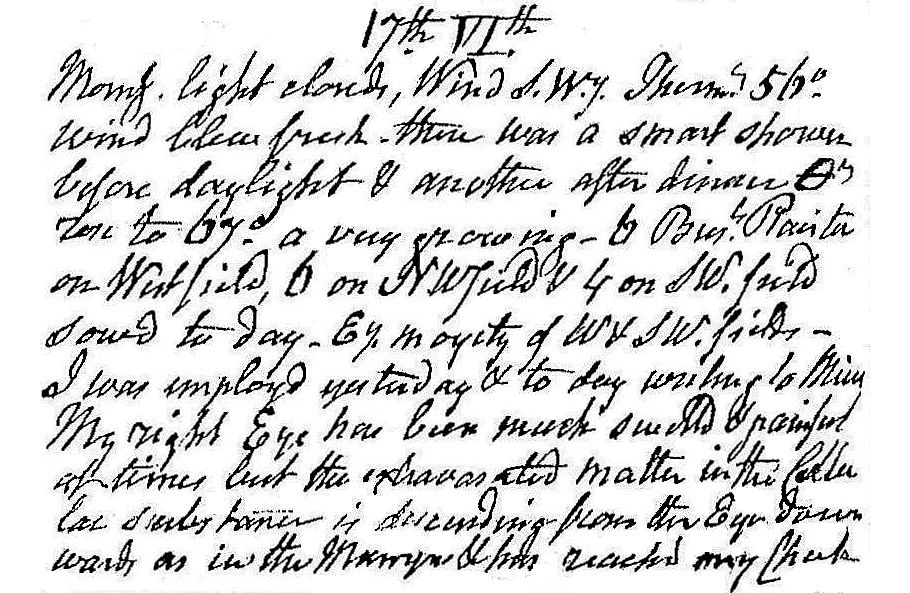 17th VIth
Morng. light clouds, Wind S.Wy. Thermr. 56°
wind blew fresh - there was a smart shower
before daylight & another after dinner
rose to 67° a very growing - 6 Bus.
on Westfield, 6 on NWfield & 4 on SW. field
sowed to day - Ey. moyety of W & SW. fields -
I was employd yesterday & to day writing to
My right Eye has been much swelld & painful
at times but the extravasated matter in the Cellu
lar substance is descending from the Eye down
wards as in the & has reached my Cheek